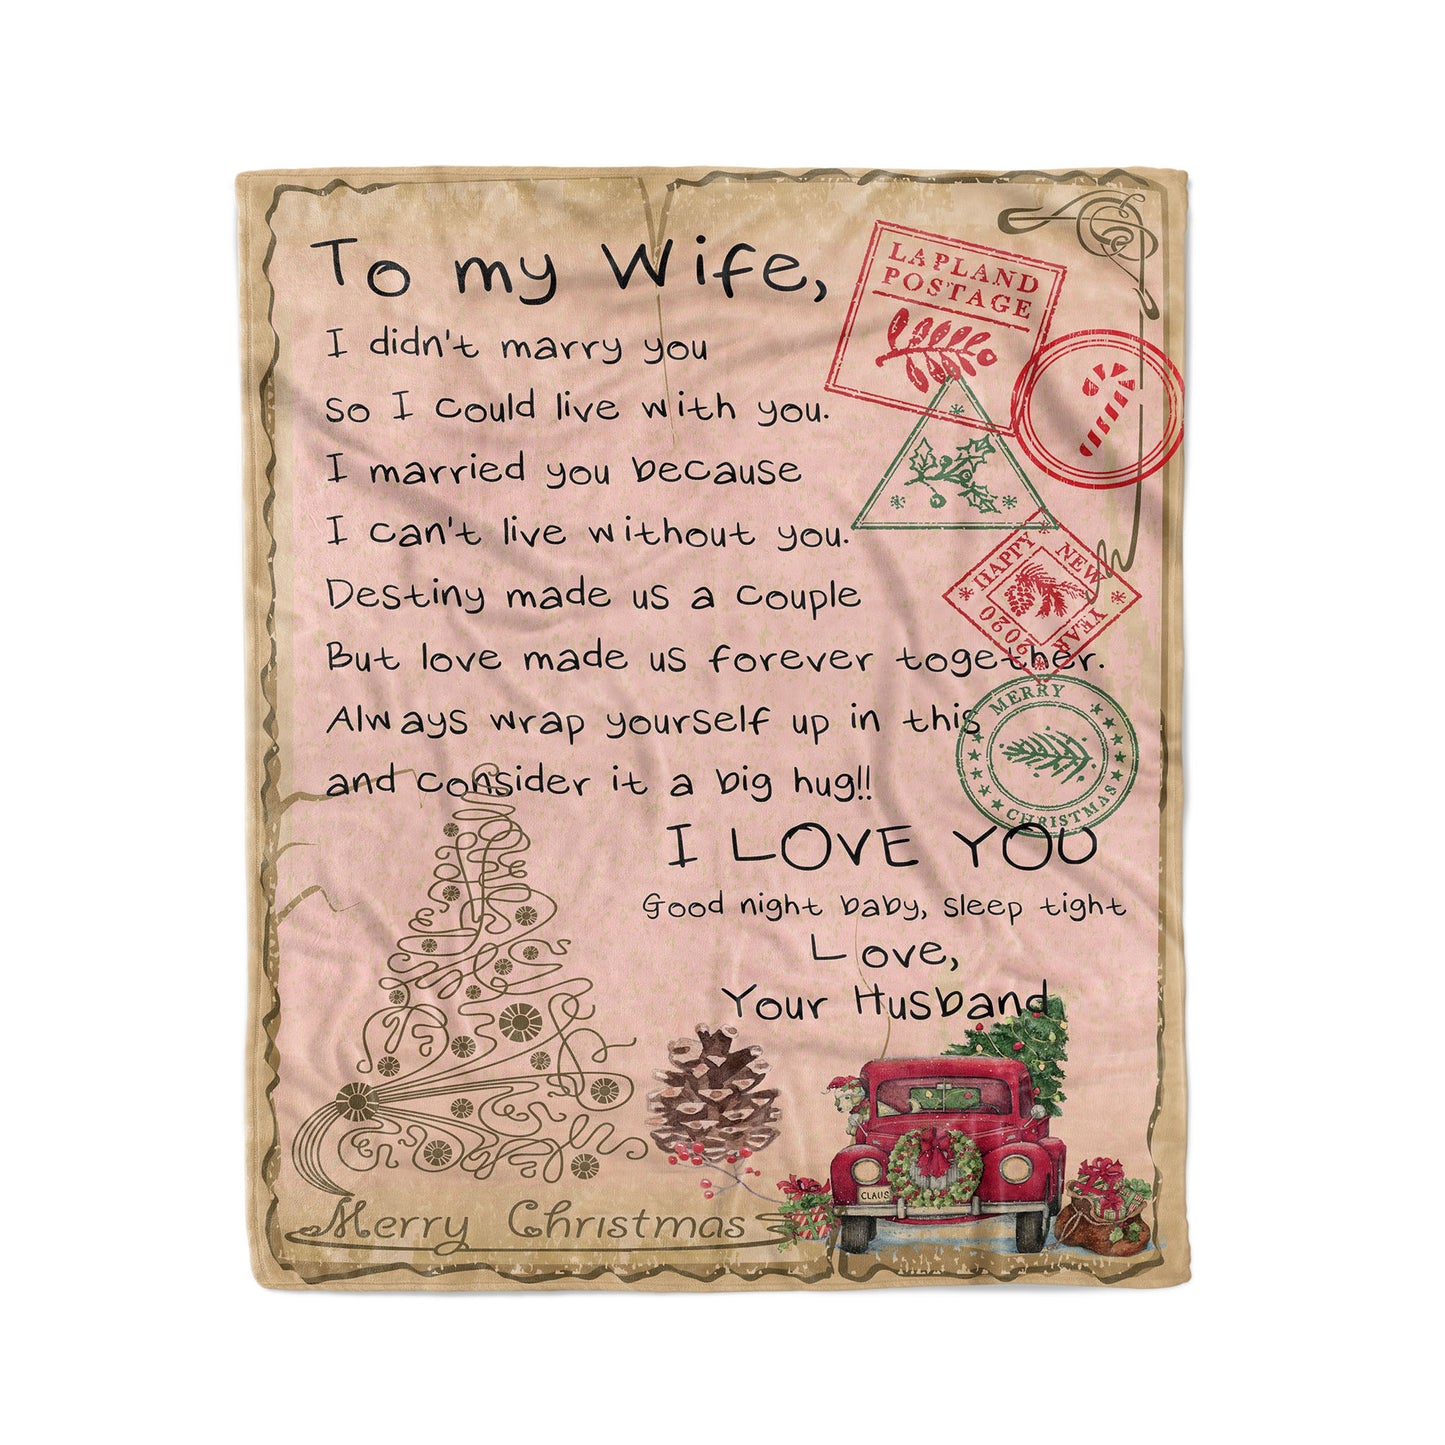 To my Wife,
LAPLAND
POSTAGE
I didn't marry you
so I could live with you.
I married you because
I can't live without you.
HAPPY NEW
YEAR 2020
Destiny made us a couple
But love made us forever together.
MERRY
CHRISTMAS
Always wrap yourself up in this
and consider it a big hug!!
I LOVE YOU
Good night baby, sleep tight
Love,
Your Husband
CLAUS
Merry Christmas